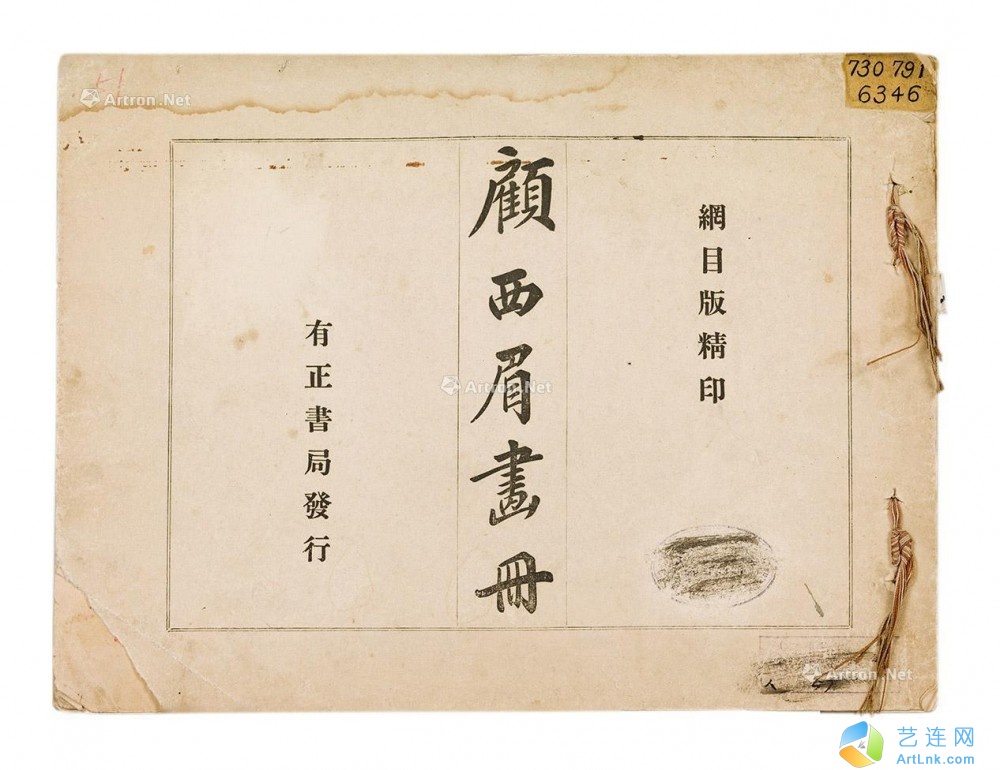 730 791
6346
網目版精印
顧西眉畫冊
有正書局發行
Artron.Net
Artron.Net
Artron.Net
艺连网
ArtLnk.com